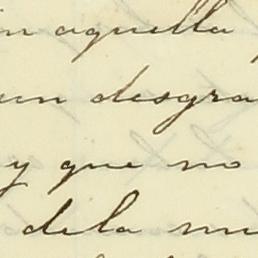 in aquella
un desgra
y que no
dela mu